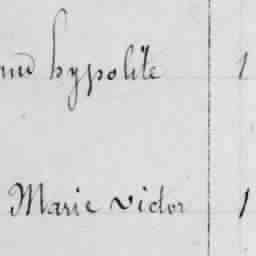 hypolite 1
Marie victor 1